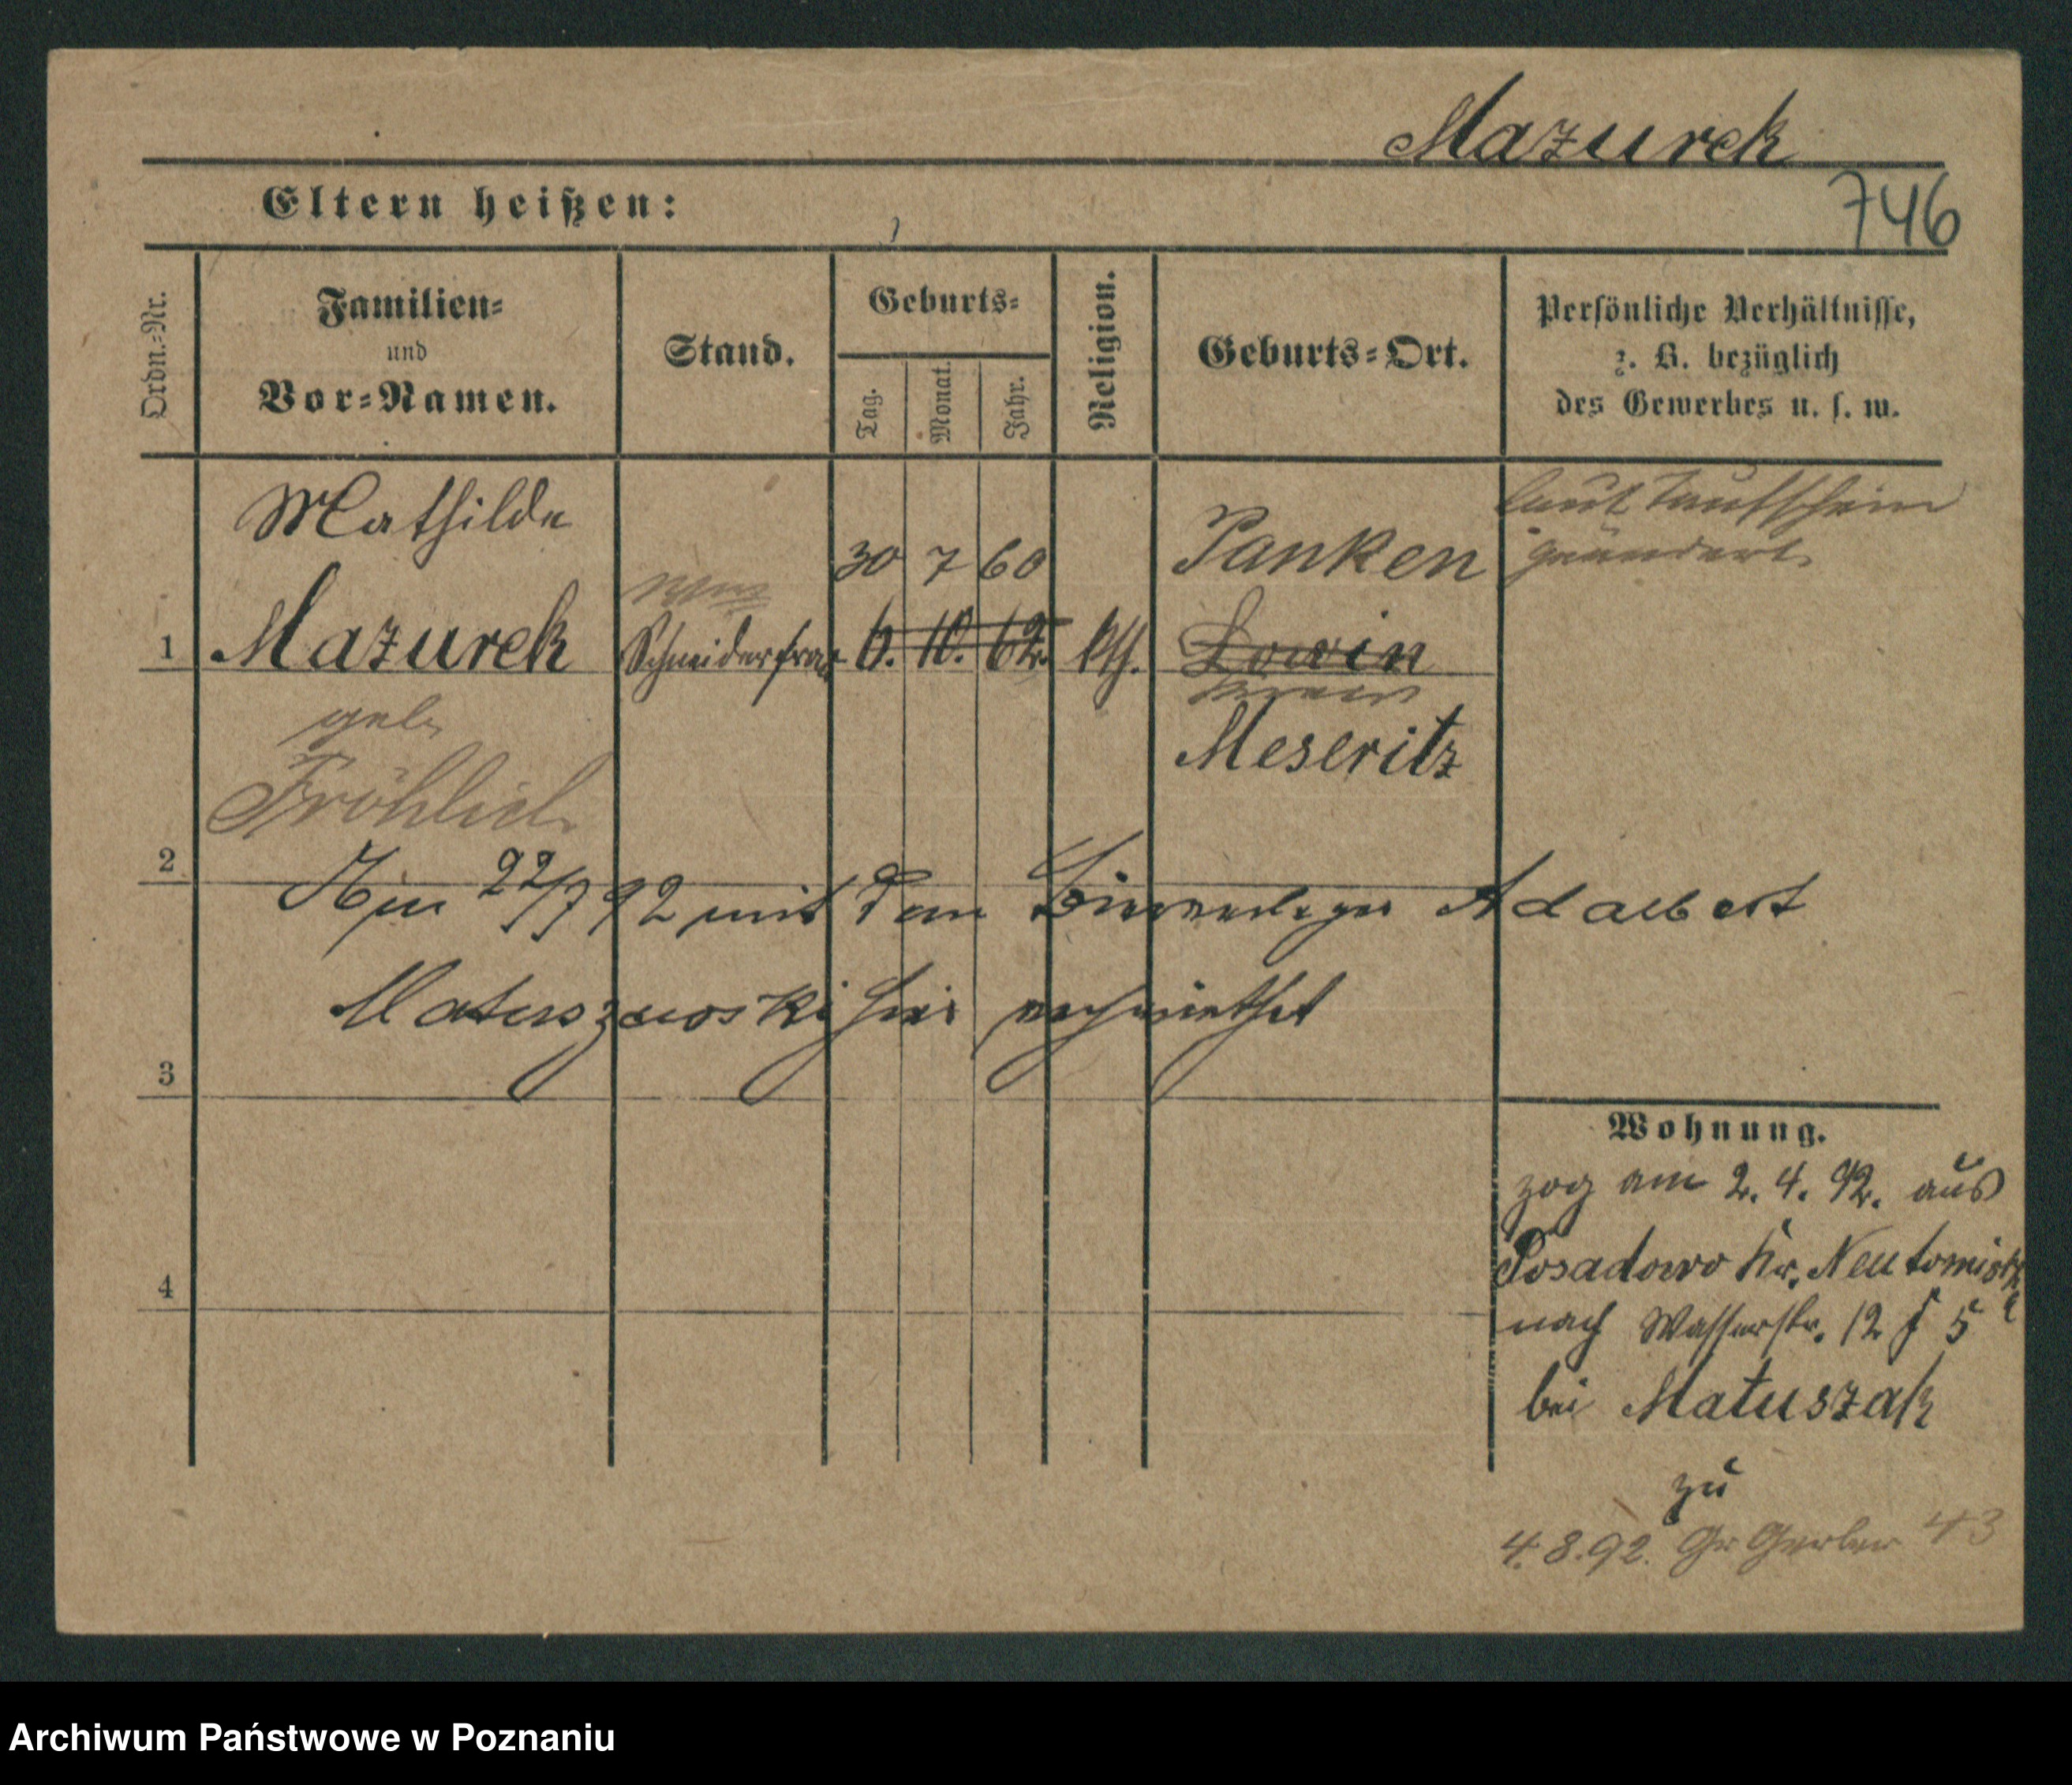 Mazurek
746
Eltern heißen:
Ordn.-Nr.
Familien-
und
Vor-Namen.
Stand.
Geburts-
Tag.
Monat.
Jahr.
Religion.
Geburts-Ort.
Persönliche Verhältnisse,
z. B. bezüglich
des Gewerbes u. s. w.
Mathilde
30 7 60
Panken
laut Taufschein
geändert
1 Mazurek Schneiderfrau 6. 10. 62. kth. Lowin
Kreis
Meseritz
geb.
Fröhlich
2
Am 22/7 92 mit dem Bierverleger Adalbert
Matuszewski hier verheirathet
3
Wohnung.
zog am 2. 4. 92. aus
Posadowo Kr. Neutomischl
nach Wasserstr. 12 5
bei Matuszak
4
zu
4.8.92. Gr Gerber 43
Archiwum Państwowe w Poznaniu